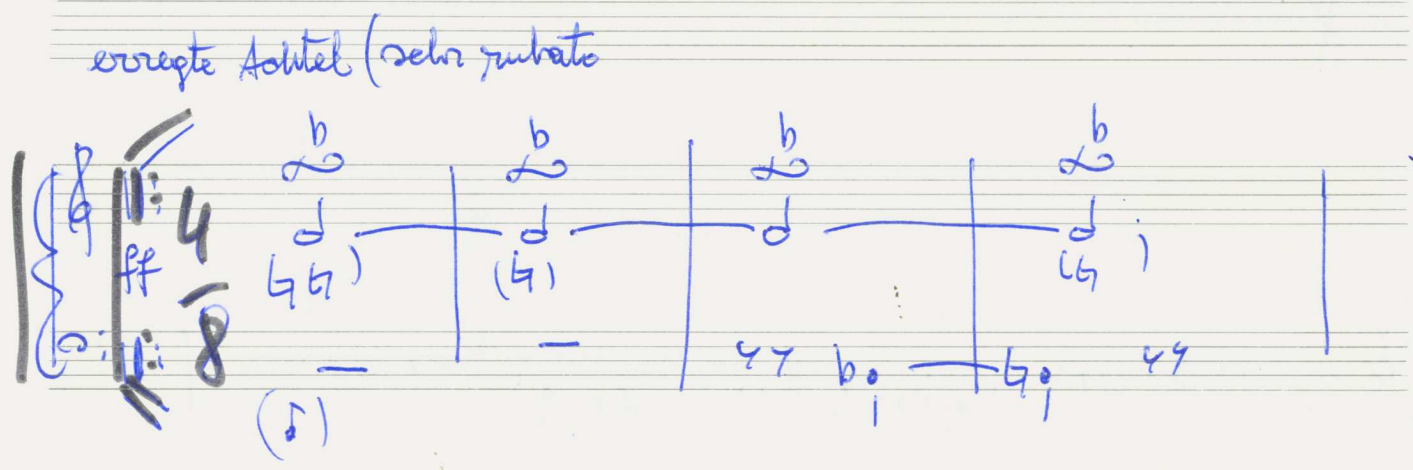 erregte Achtel (sehr rubato
ff 4
8